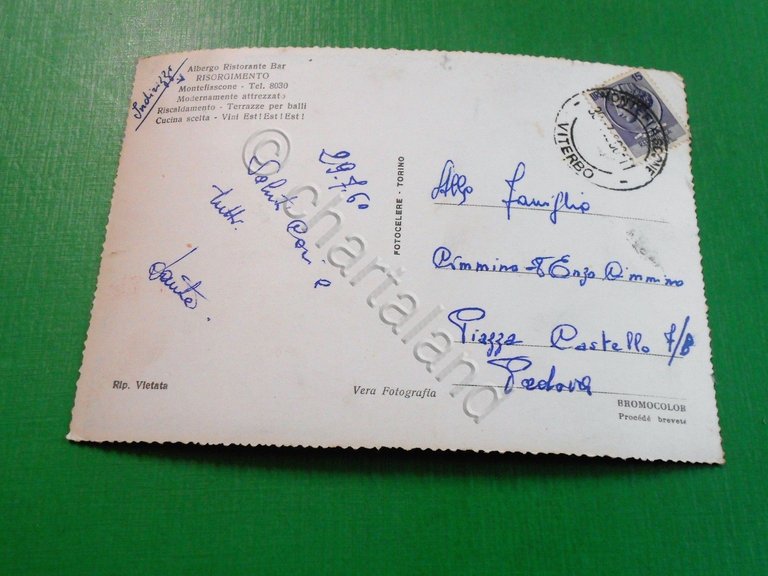 Albergo Ristorante Bar
RISORGIMENTO
Montefiascone - Tel. 8030
Modernamente attrezzato
Riscaldamento - Terrazze per balli
Cucina scelta - Vini Est! Est! Est!
29.7.60
Saluti Cari a
tutti.
Sante
Rip. Vietata
FOTOCELERE - TORINO
Vera Fotografia
15
MONTEFIASCONE
VITERBO
Alla Famiglia
Cimmino Enzo Cimmino
Piazza Castello 7/B
Padova
BROMOCOLOR
Procédé breveté
© chartaland